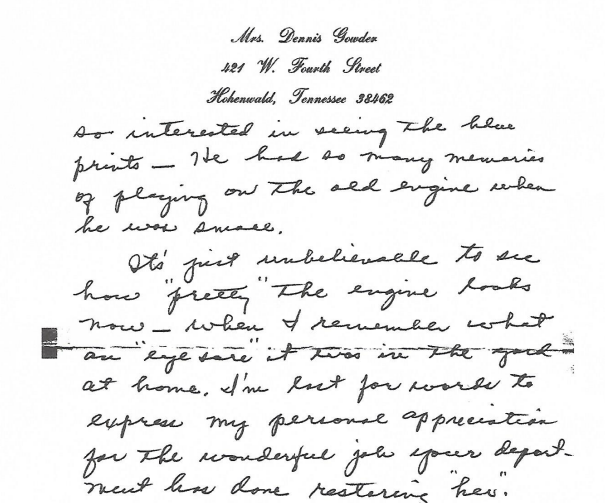 Mrs. Dennis Gowder
421 W. Fourth Street
Hohenwald, Tennessee 38462
so interested in seeing the blue
prints — He had so many memories
of playing on the old engine when
he was small.
It's just unbelievable to see
how "pretty" the engine looks
now — when I remember what
an "eye sore" it was in the yard
at home. I'm lost for words to
express my personal appreciation
for the wonderful job your depart-
ment has done restoring "her".